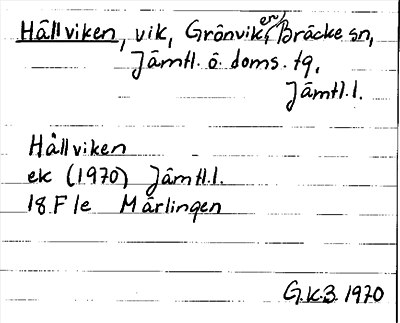 Hällviken, vik, Grönviken, Bräcke sn,
Jämtl. ö. doms. tg,
Jämtl.l.
Hällviken
ek (1970) Jämtl.l.
18 F 1e Märlingen
G.K.B. 1970